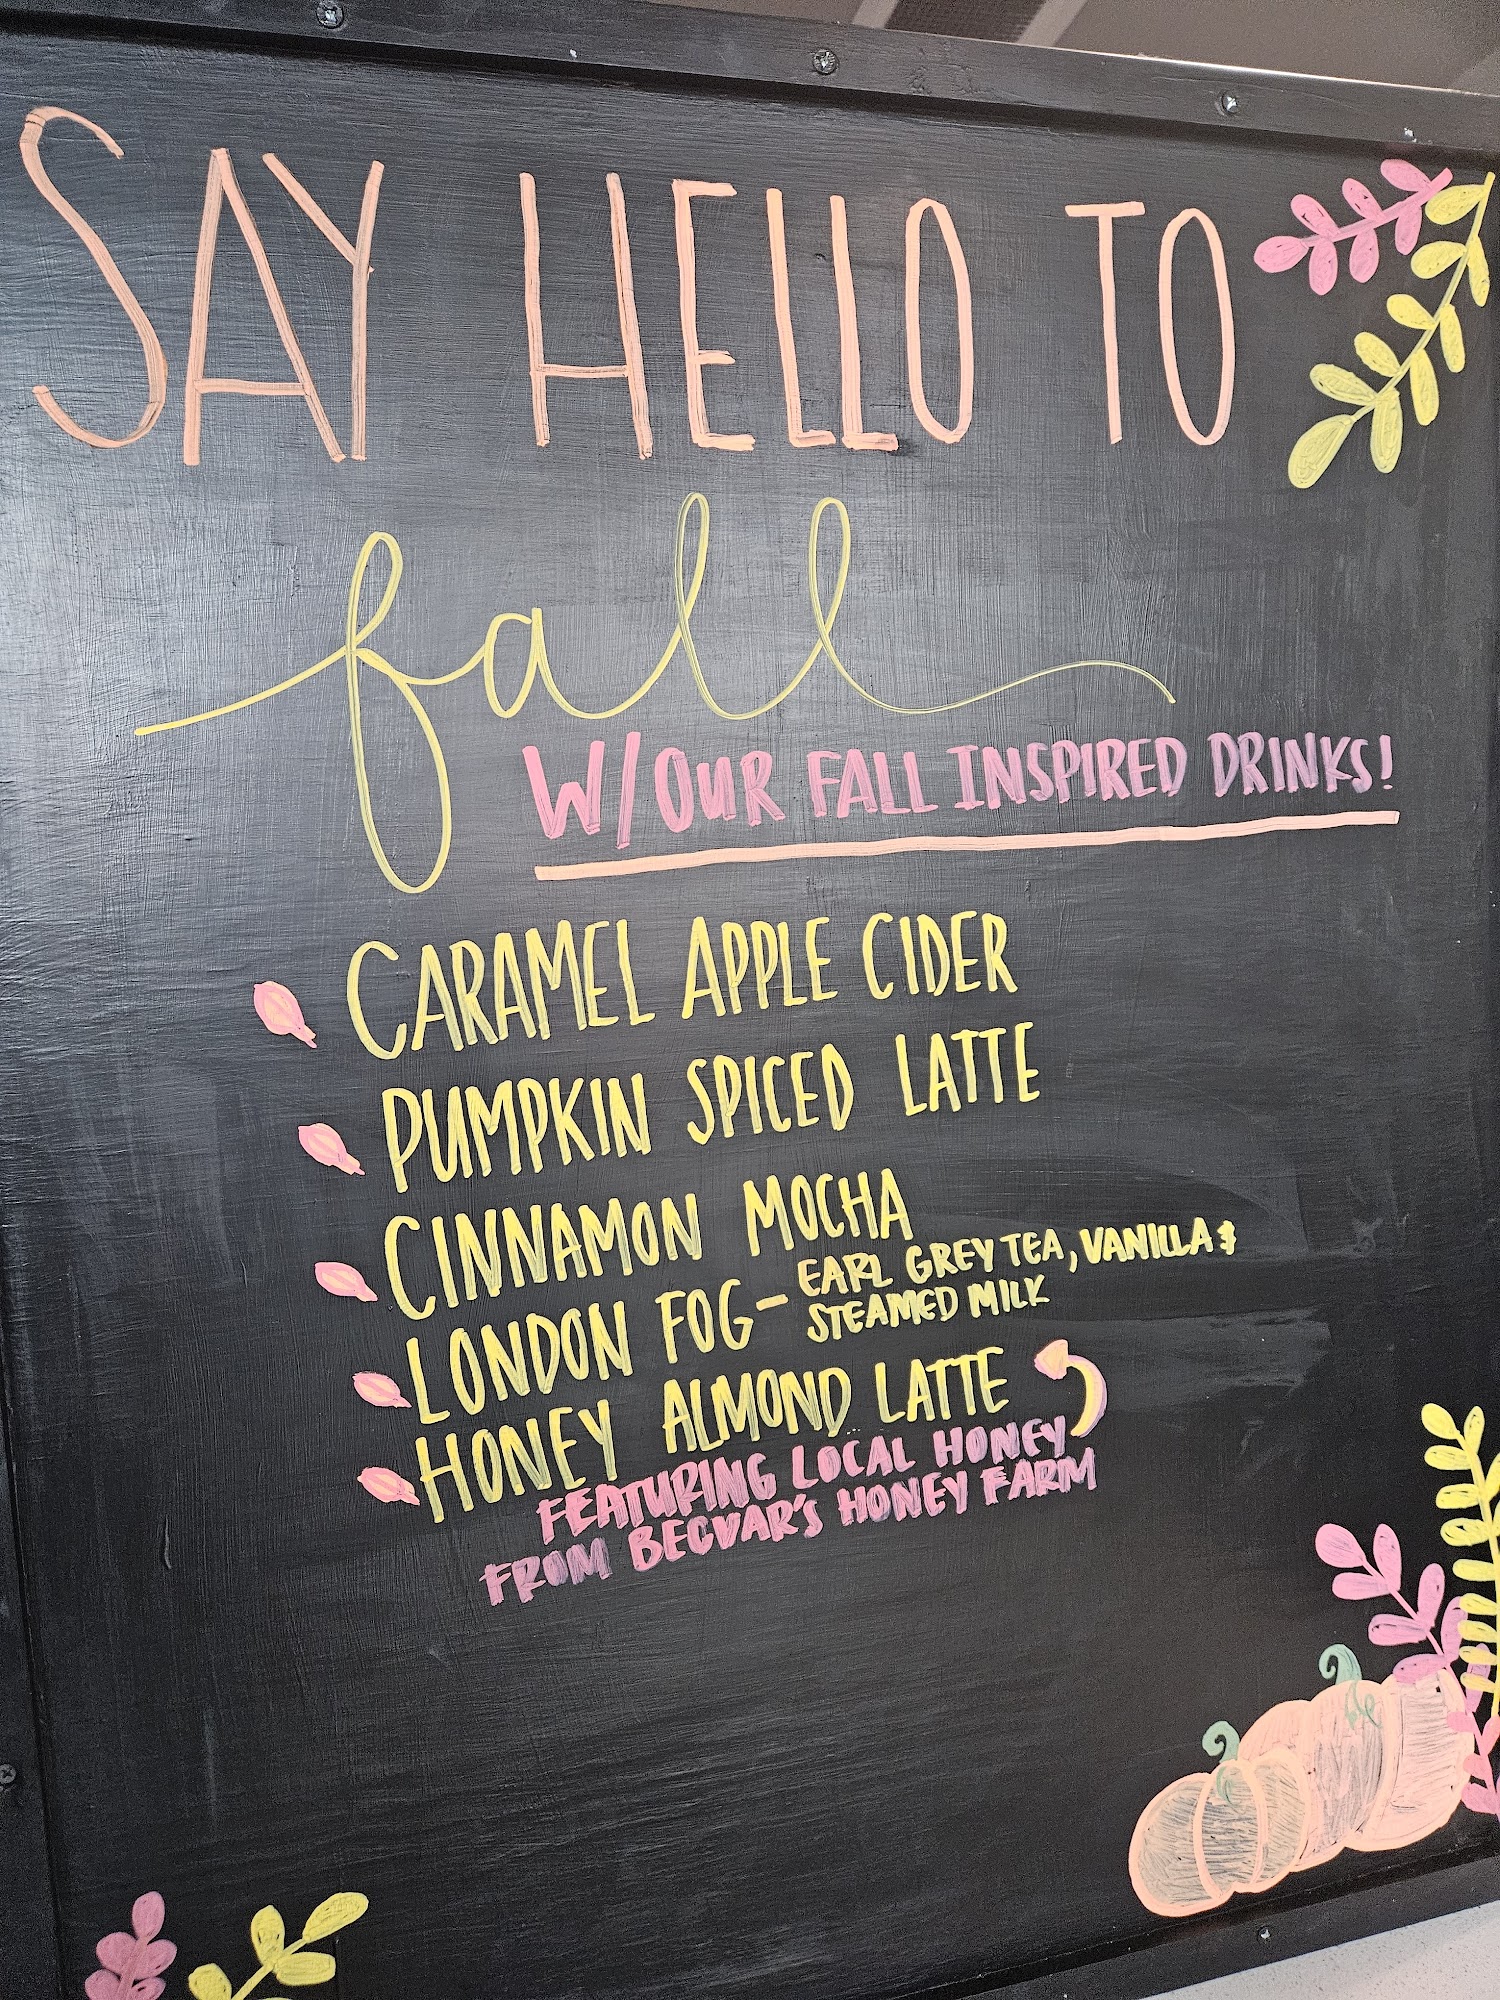 SAY HELLO TO
fall
W/OUR FALL INSPIRED DRINKS!
CARAMEL APPLE CIDER
PUMPKIN SPICED LATTE
CINNAMON MOCHA
LONDON FOG - EARL GREY TEA, VANILLA &
STEAMED MILK
HONEY ALMOND LATTE
FEATURING LOCAL HONEY
FROM BEGVAR'S HONEY FARM